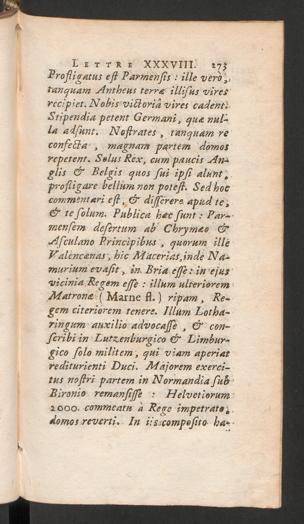 LETTRE XXXVIII. 273
Profligatus est Parmensis : ille vero,
tanquam Antheus terræ illisus vires
recipiet. Nobis victoriâ vires cadent.
Stipendia petent Germani, quæ nul-
la adsunt. Nostrates, tanquam re
confecta, magnam partem domos
repetent. Solus Rex, cum paucis An-
glis & Belgis quos sui ipsi alunt,
profligare bellum non potest. Sed hoc
commentari est, & differere apud te,
& te solum. Publica hæc sunt : Par-
mensem desertum ab Chrymæo &
Asculano Principibus, quorum ille
Valencænas, hic Macerias, inde Na-
murium evasit, in Bria esse : in ejus
vicinia Regem esse : illum ulteriorem
Matronæ ( Marne fl. ) ripam, Re-
gem citeriorem tenere. Illum Lotha-
ringum auxilio advocasse, & con-
scribi in Lutzenburgico & Limbur-
gico solo militem, qui viam aperiat
rediturienti Duci. Majorem exerci-
tus nostri partem in Normandia sub
Bironio remansisse : Helvetiorum
2000. commeatu à Rege impetrato,
domos reverti. In iis composito ha-